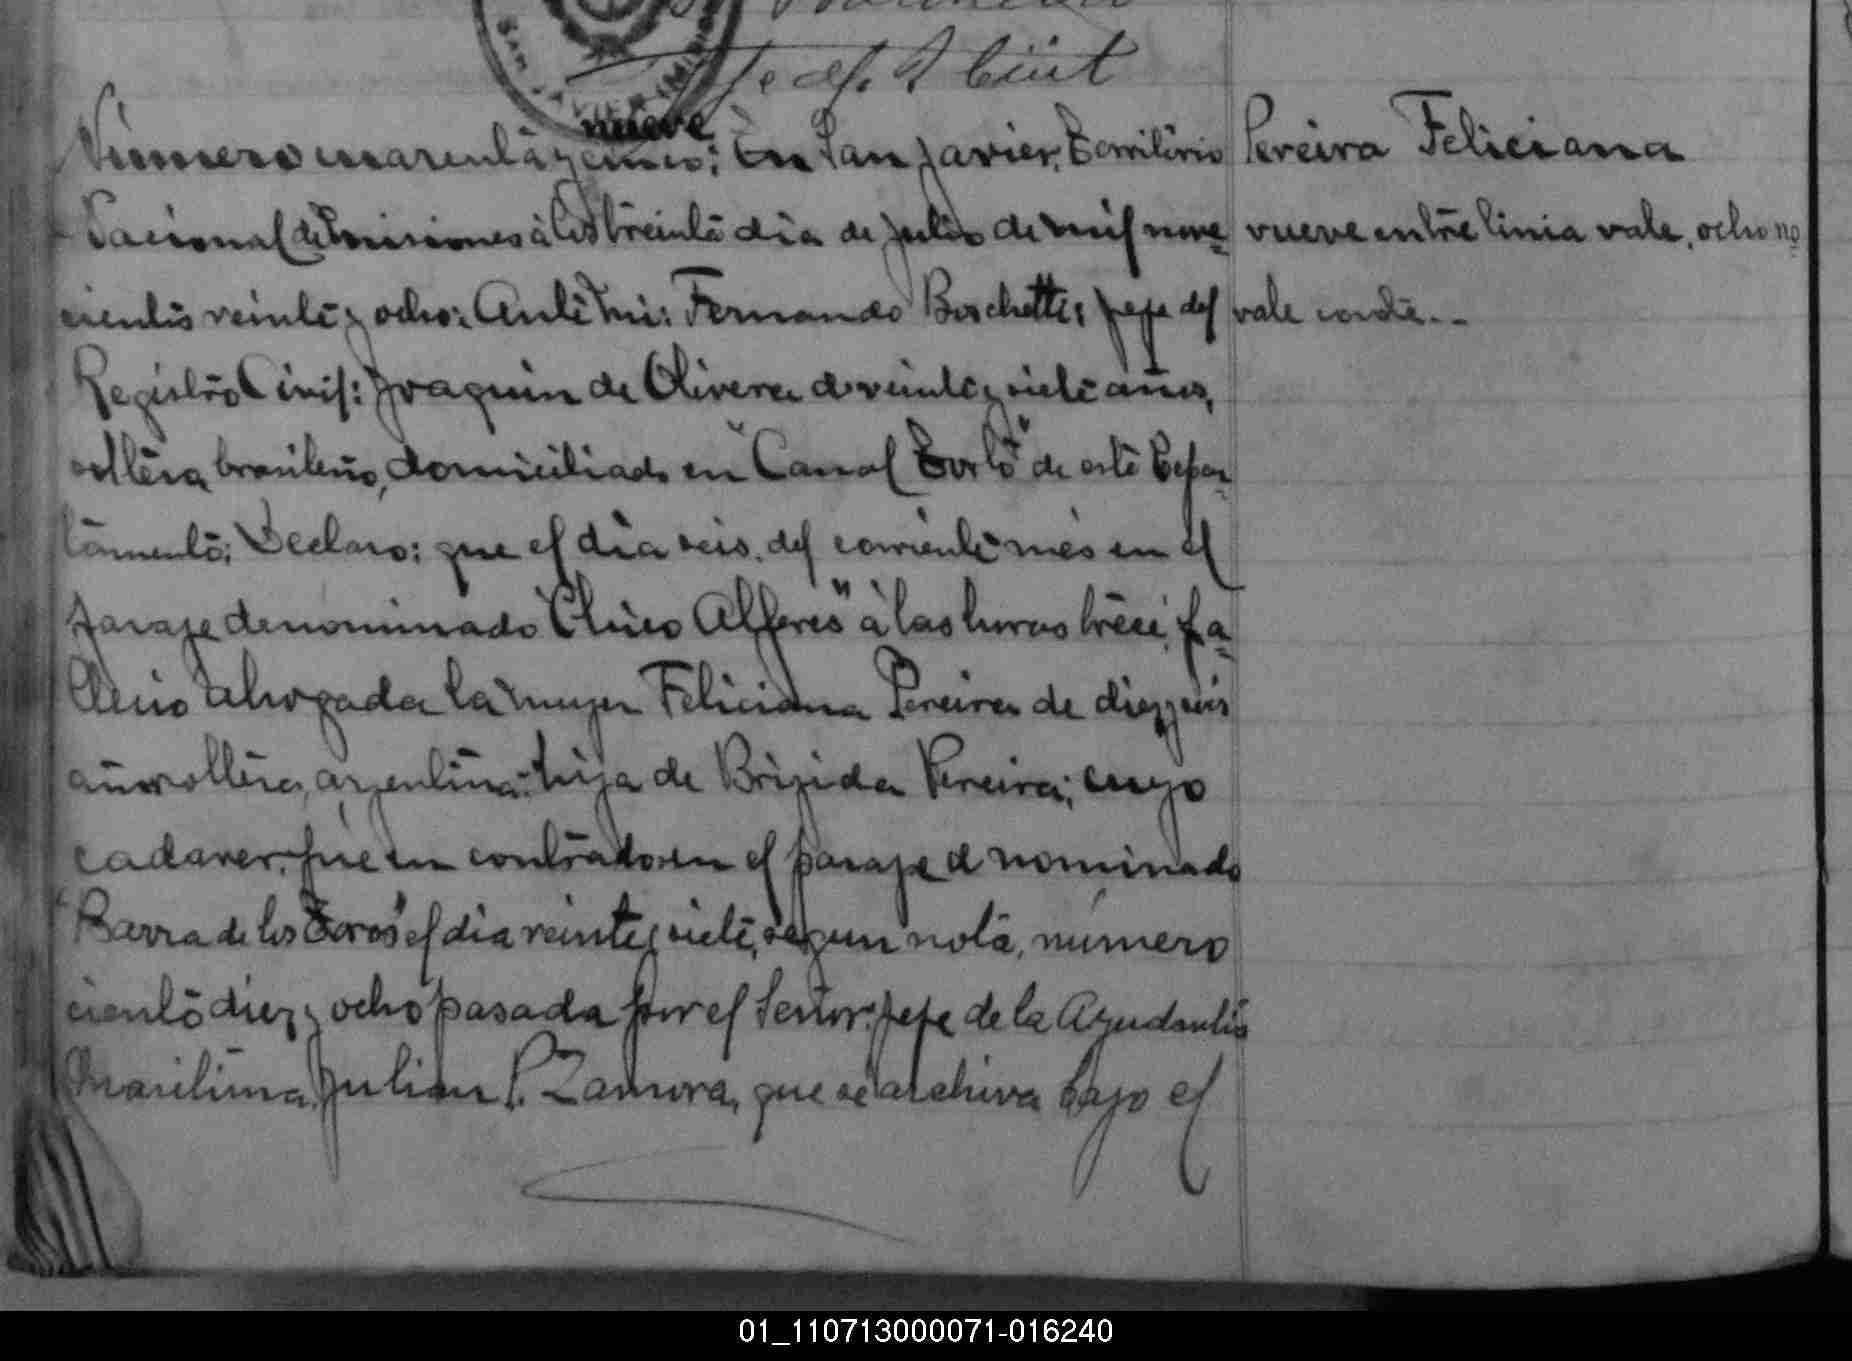 SAN JAVIER (MISIONES
Jefe del R Civil
nueve
Número cuarenta y cinco: En San Javier, Territorio
Nacional de Misiones à los treinta dia de Julio de mil nove=
cientos veinte y ocho: Ante mi: Fernando Boschetti: Jefe del
Registro Civil: Joaquin de Olivera de veinte y siete años,
soltero, brasileño, domiciliado en "Canal Torto" de este Depar=
tamento; Declaro: que el dia seis del corriente mes en el
paraje denominado "Chico Alferes" à las horas trece, fa=
llecio ahogada la mujer Feliciana Pereira de diez y seis
años soltera, argentina: hija de Brijida Pereira; cuyo
cadaver, fue en contrado en el paraje d nominado
"Barra de los" el dia veinte y siete, segun nota, número
ciento diez y ocho pasada por el Señor: Jefe de la Ayudantia
Maritima, Julian P. Zamora, que se archiva bajo el
Pereira Feliciana
nueve entre linia vale, ocho no
vale conste.--
01_110713000071-016240